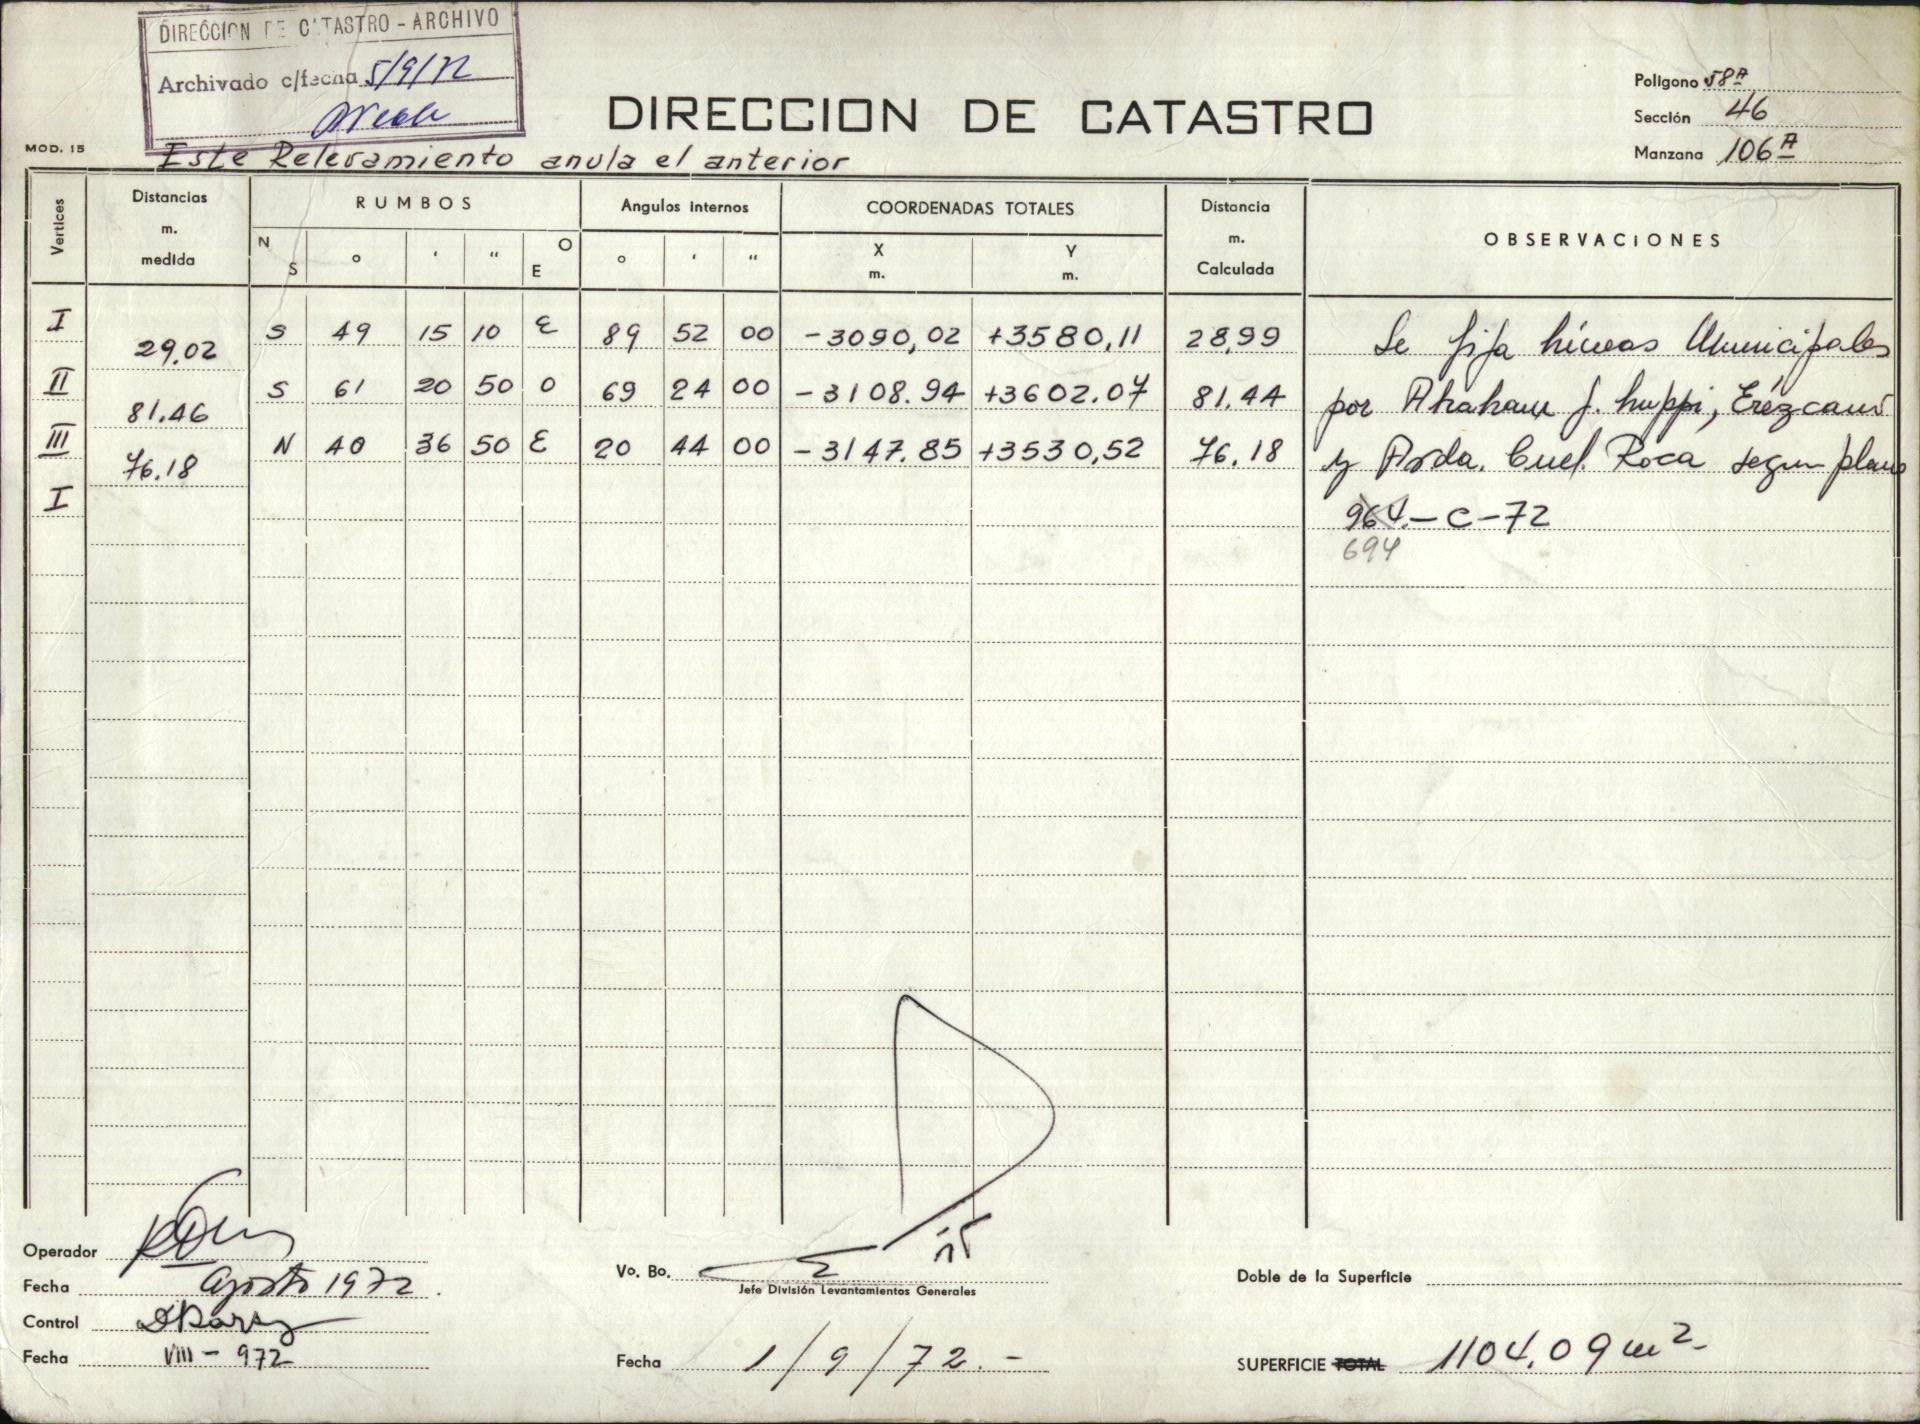 DIRECCION DE CATASTRO - ARCHIVO
Archivado c/fecha 5/9/72
DIRECCION DE CATASTRO
Poligono 58A
Sección 46
Manzana 106A
MOD. 15
Este Relevamiento anula el anterior
Vertices Distancias m. medida RUMBOS Angulos internos COORDENADAS TOTALES Distancia m. Calculada OBSERVACIONES
N S ° ' " O E ° ' " X m. Y m.
I 29.02 S 49 15 10 E 89 52 00 -3090,02 +3580,11 28,99 Se fija líneas Municipales
II 81.46 S 61 20 50 O 69 24 00 -3108.94 +3602.07 81.44 por Abraham J. Luppi, Erézcano
III 76.18 N 40 36 50 E 20 44 00 -3147.85 +3530,52 76.18 y Avda. Cnel. Roca segun plano
I 964.-C-72
694
Operador
Fecha Agosto 1972.
Control
Fecha VIII - 972
Vo. Bo.
Jefe División Levantamientos Generales
Fecha 1/9/72.-
Doble de la Superficie
SUPERFICIE TOTAL 1104.09 m2.-